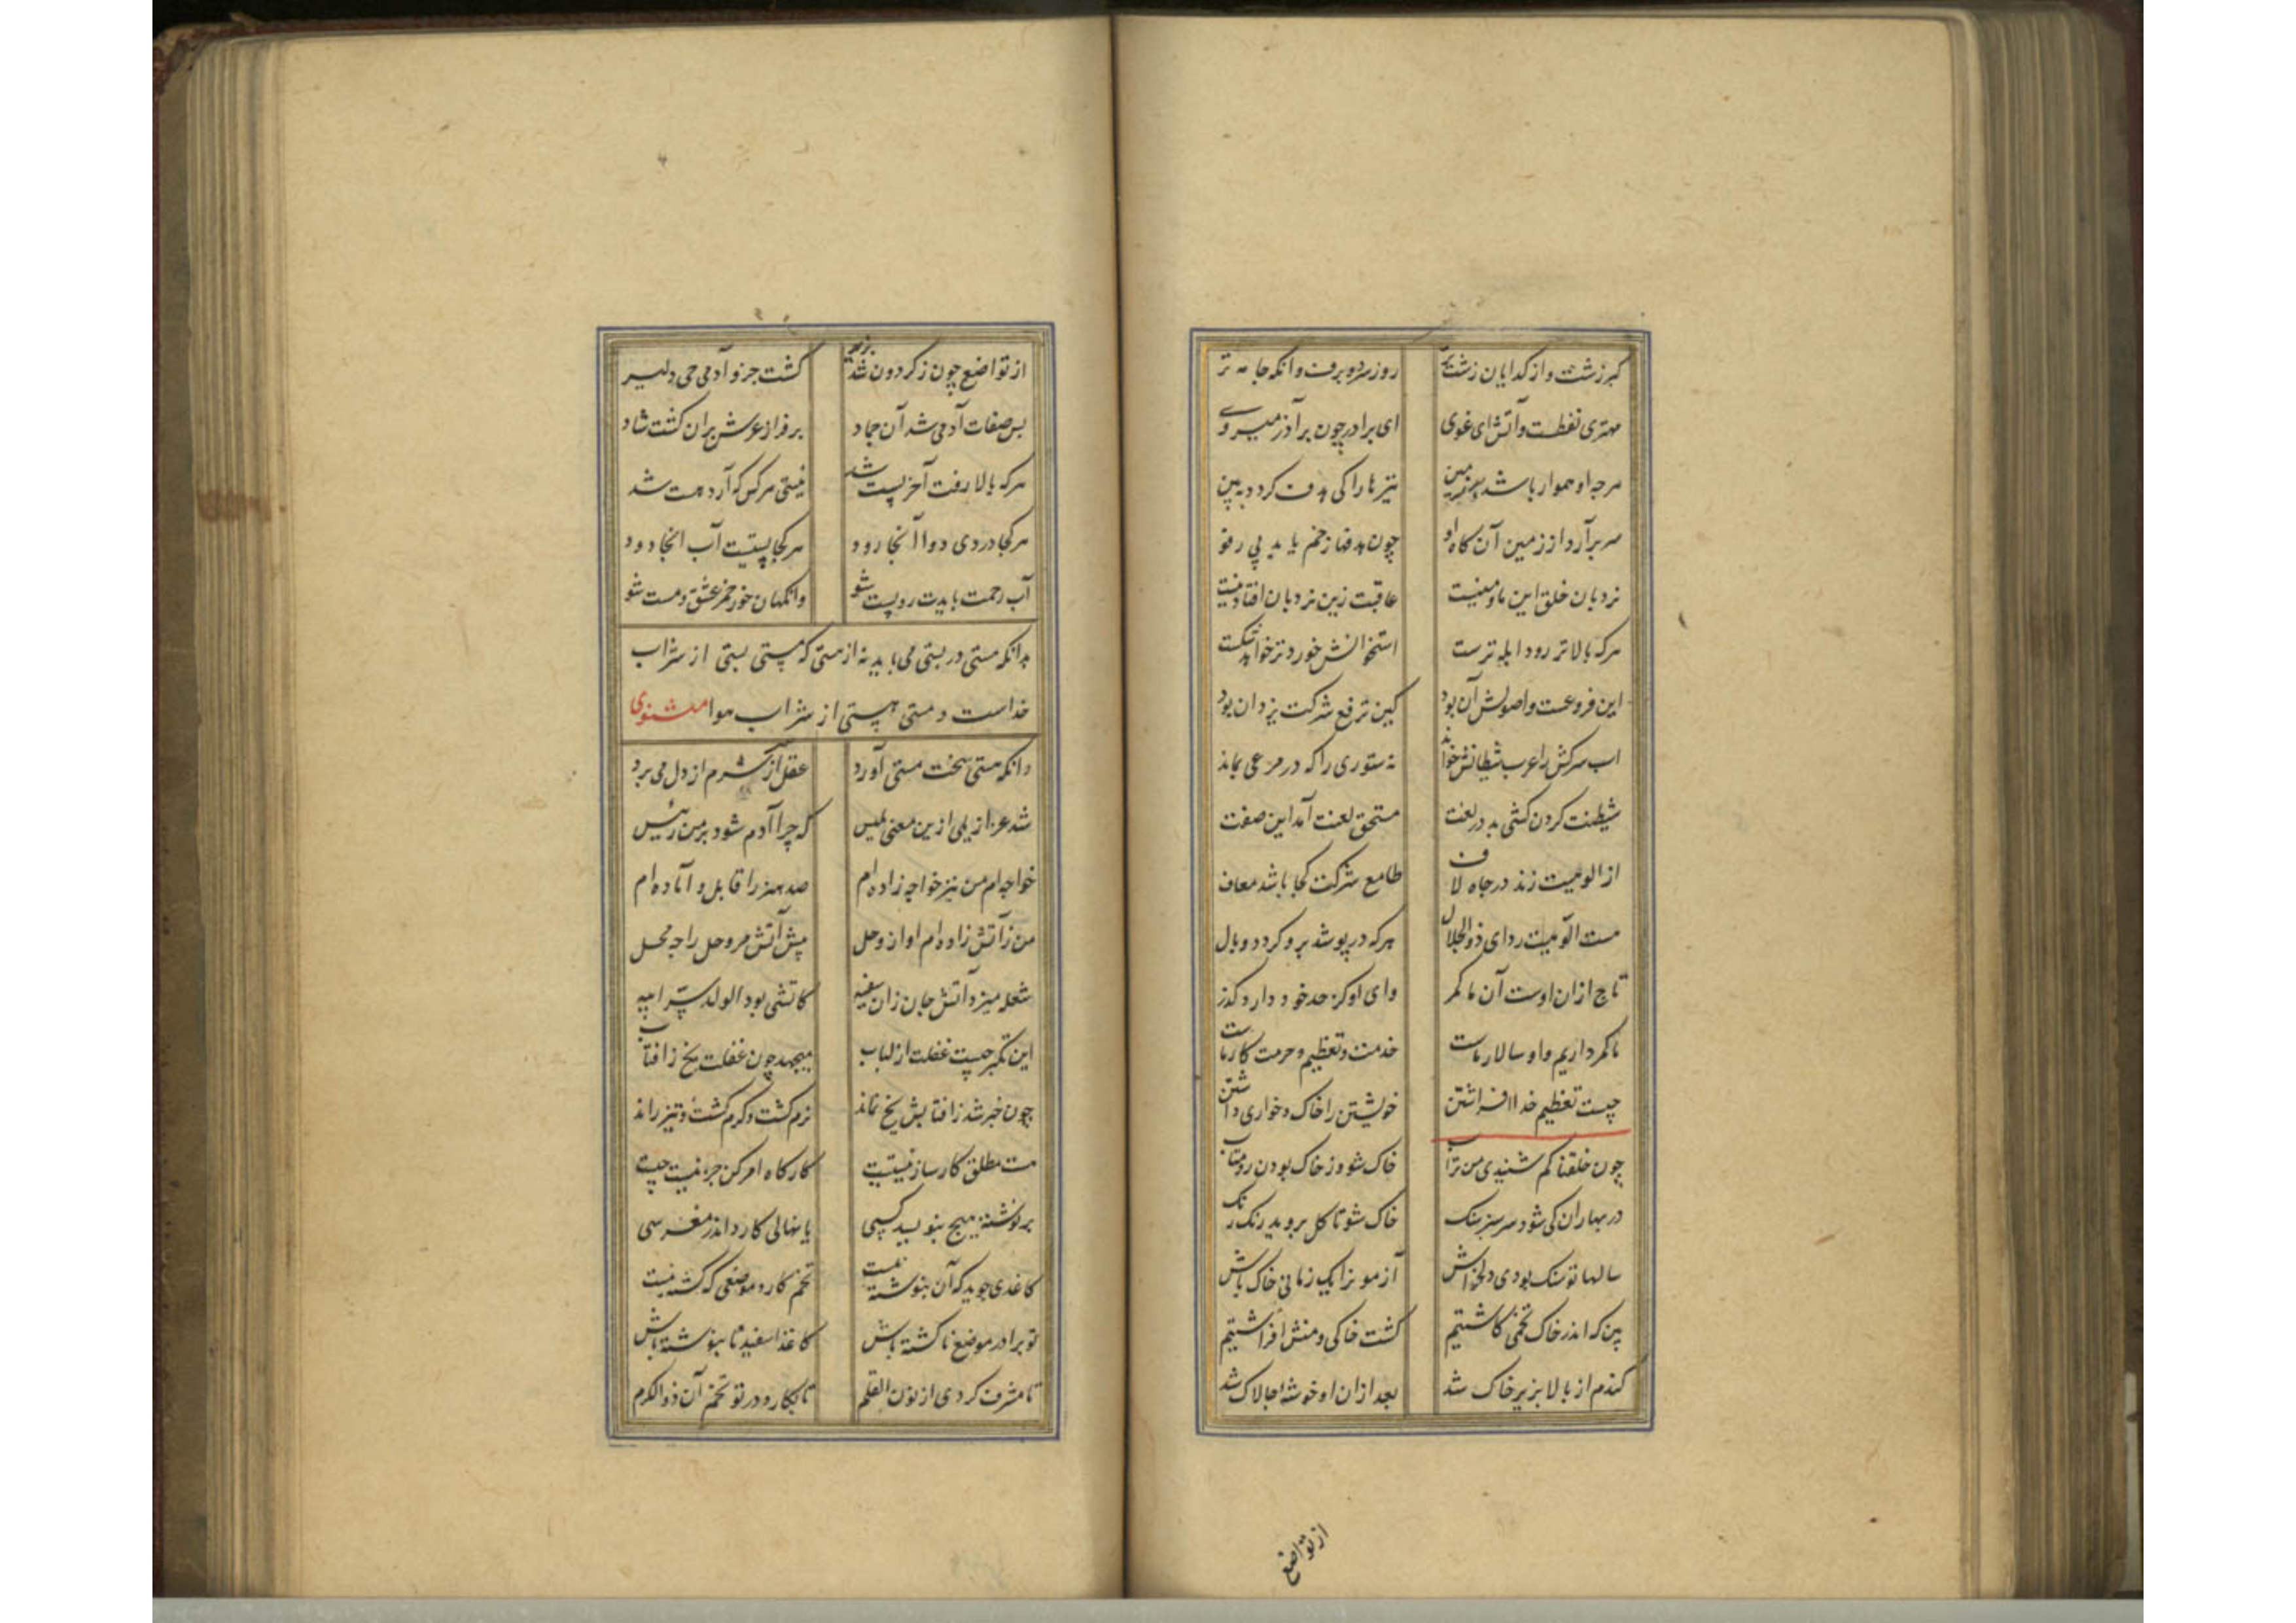 کبر زشت و از کدایان زشت‌تر روز سرد و برف و آنکه جامه تر
مهتری نفطست و آتش ای غوی ای برادر چون بر آذر میروی
هرچه او هموار باشد بر زمین تیرها را کی هدف کردد ببین
سر برآرد از زمین آن کاه او چون هدفها زخم یابد بی رفو
نردبان خلق این ما و منیست عاقبت زین نردبان افتادنیست
هرکه بالاتر رود ابله ترست استخوانش خوردتر خواهد شکست
این فروعست و اصولش آن بود کین ترفع شرکت یزدان بود
اسب سرکش را عرب شیطانش خواند نه ستوری را که در مرعی بماند
شیطنت کردن کشی بد در لغت مستحق لعنت آمد این صفت
از الوهیت زند در جاه لاف طامع شرکت کجا باشد معاف
هست الوهیت ردای ذوالجلال هرکه درپوشد برو کردد وبال
تاج از ان اوست آن ما کمر وای او کز حد خود دارد کذر
ما کمر داریم و او سالار ماست خدمت و تعظیم و حرمت کار ماست
چیست تعظیم خدا افراشتن خویشتن را خاک و خواری داشتن
چون خلقناکم شنیدی من تراب خاک شو وز خاک بودن رو متاب
در بهاران کی شود سرسبز سنک خاک شو تا کل بروید رنک رنک
سالها تو سنک بودی دلخراش آزمون را یک زمانی خاک باش
بین که اندر خاک تخمی کاشتیم کشت خاکی و منش افراشتیم
کندم از بالا بزیر خاک شد بعد از ان او خوشه‌ها چالاک شد
از تواضع
از تواضع چون ز کردون شد بزیر کشت جزو آدمی حی دلیر
بس صفات آدمی شد آن جماد بر فراز عرش پران کشت شاد
هرکه بالا رفت آخر پست شد نیستی هرکس که آرد هست شد
هرکجا دردی دوا آنجا رود هرکجا پستیست آب انجا دود
آب رحمت بایدت رو پست شو وانکهان خور خمر عشق و مست شو
بدانکه مستی در پستی می باید نه از مستی که مستی پستی از شراب
خداست و مستی هستی از شراب هوا مثنوی
زانکه هستی سخت مستی آورد عقل از سر شرم از دل می برد
شد عزازیلی ازین معنی بلیس که چرا آدم شود بر من رئیس
خواجه ام من نیز خواجه زاده ام صد هنر را قابل و آماده ام
من ز آتش زاده ام او از وحل پیش آتش مر وحل را چه محل
شعله میزد آتش جان زان سفیه کاتشی بود الولد سر ابیه
این تکبر چیست غفلت از لباب میجهد چون غفلت یخ ز افتاب
چون خبر شد ز افتابش یخ نماند نرم کشت و کرم کشت و تیز راند
هست مطلق کارساز نیستیست کارکاه امر کن جز نیست چیست
بر نوشته هیچ بنویسد کسی یا نهالی کارد اندر مغرسی
کاغدی جوید که آن بنوشته نیست تخم کارد موضعی که کشته نیست
تو برادر موضع ناکشته باش کاغذ اسفید نابنوشته باش
تا مشرف کردی از نون القلم تا بکارد در تو تخم آن ذوالکرم